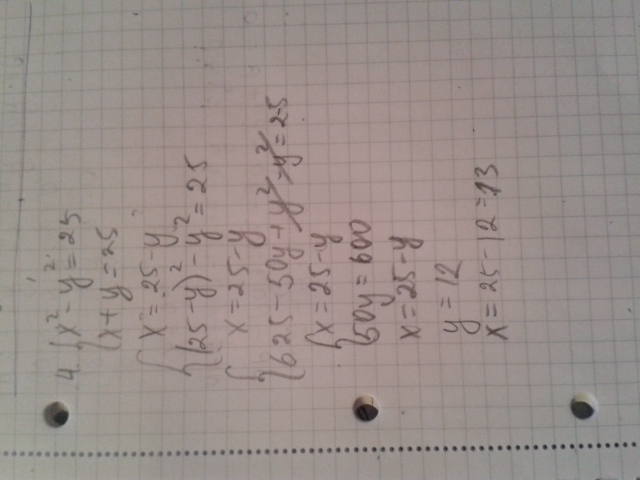 4. { x² - y² = 25
{ x + y = 25
{ x = 25 - y
{ (25 - y)² - y² = 25
{ x = 25 - y
{ 625 - 50y + y² - y² = 25
{ x = 25 - y
{ 50y = 600
x = 25 - y
y = 12
x = 25 - 12 = 13